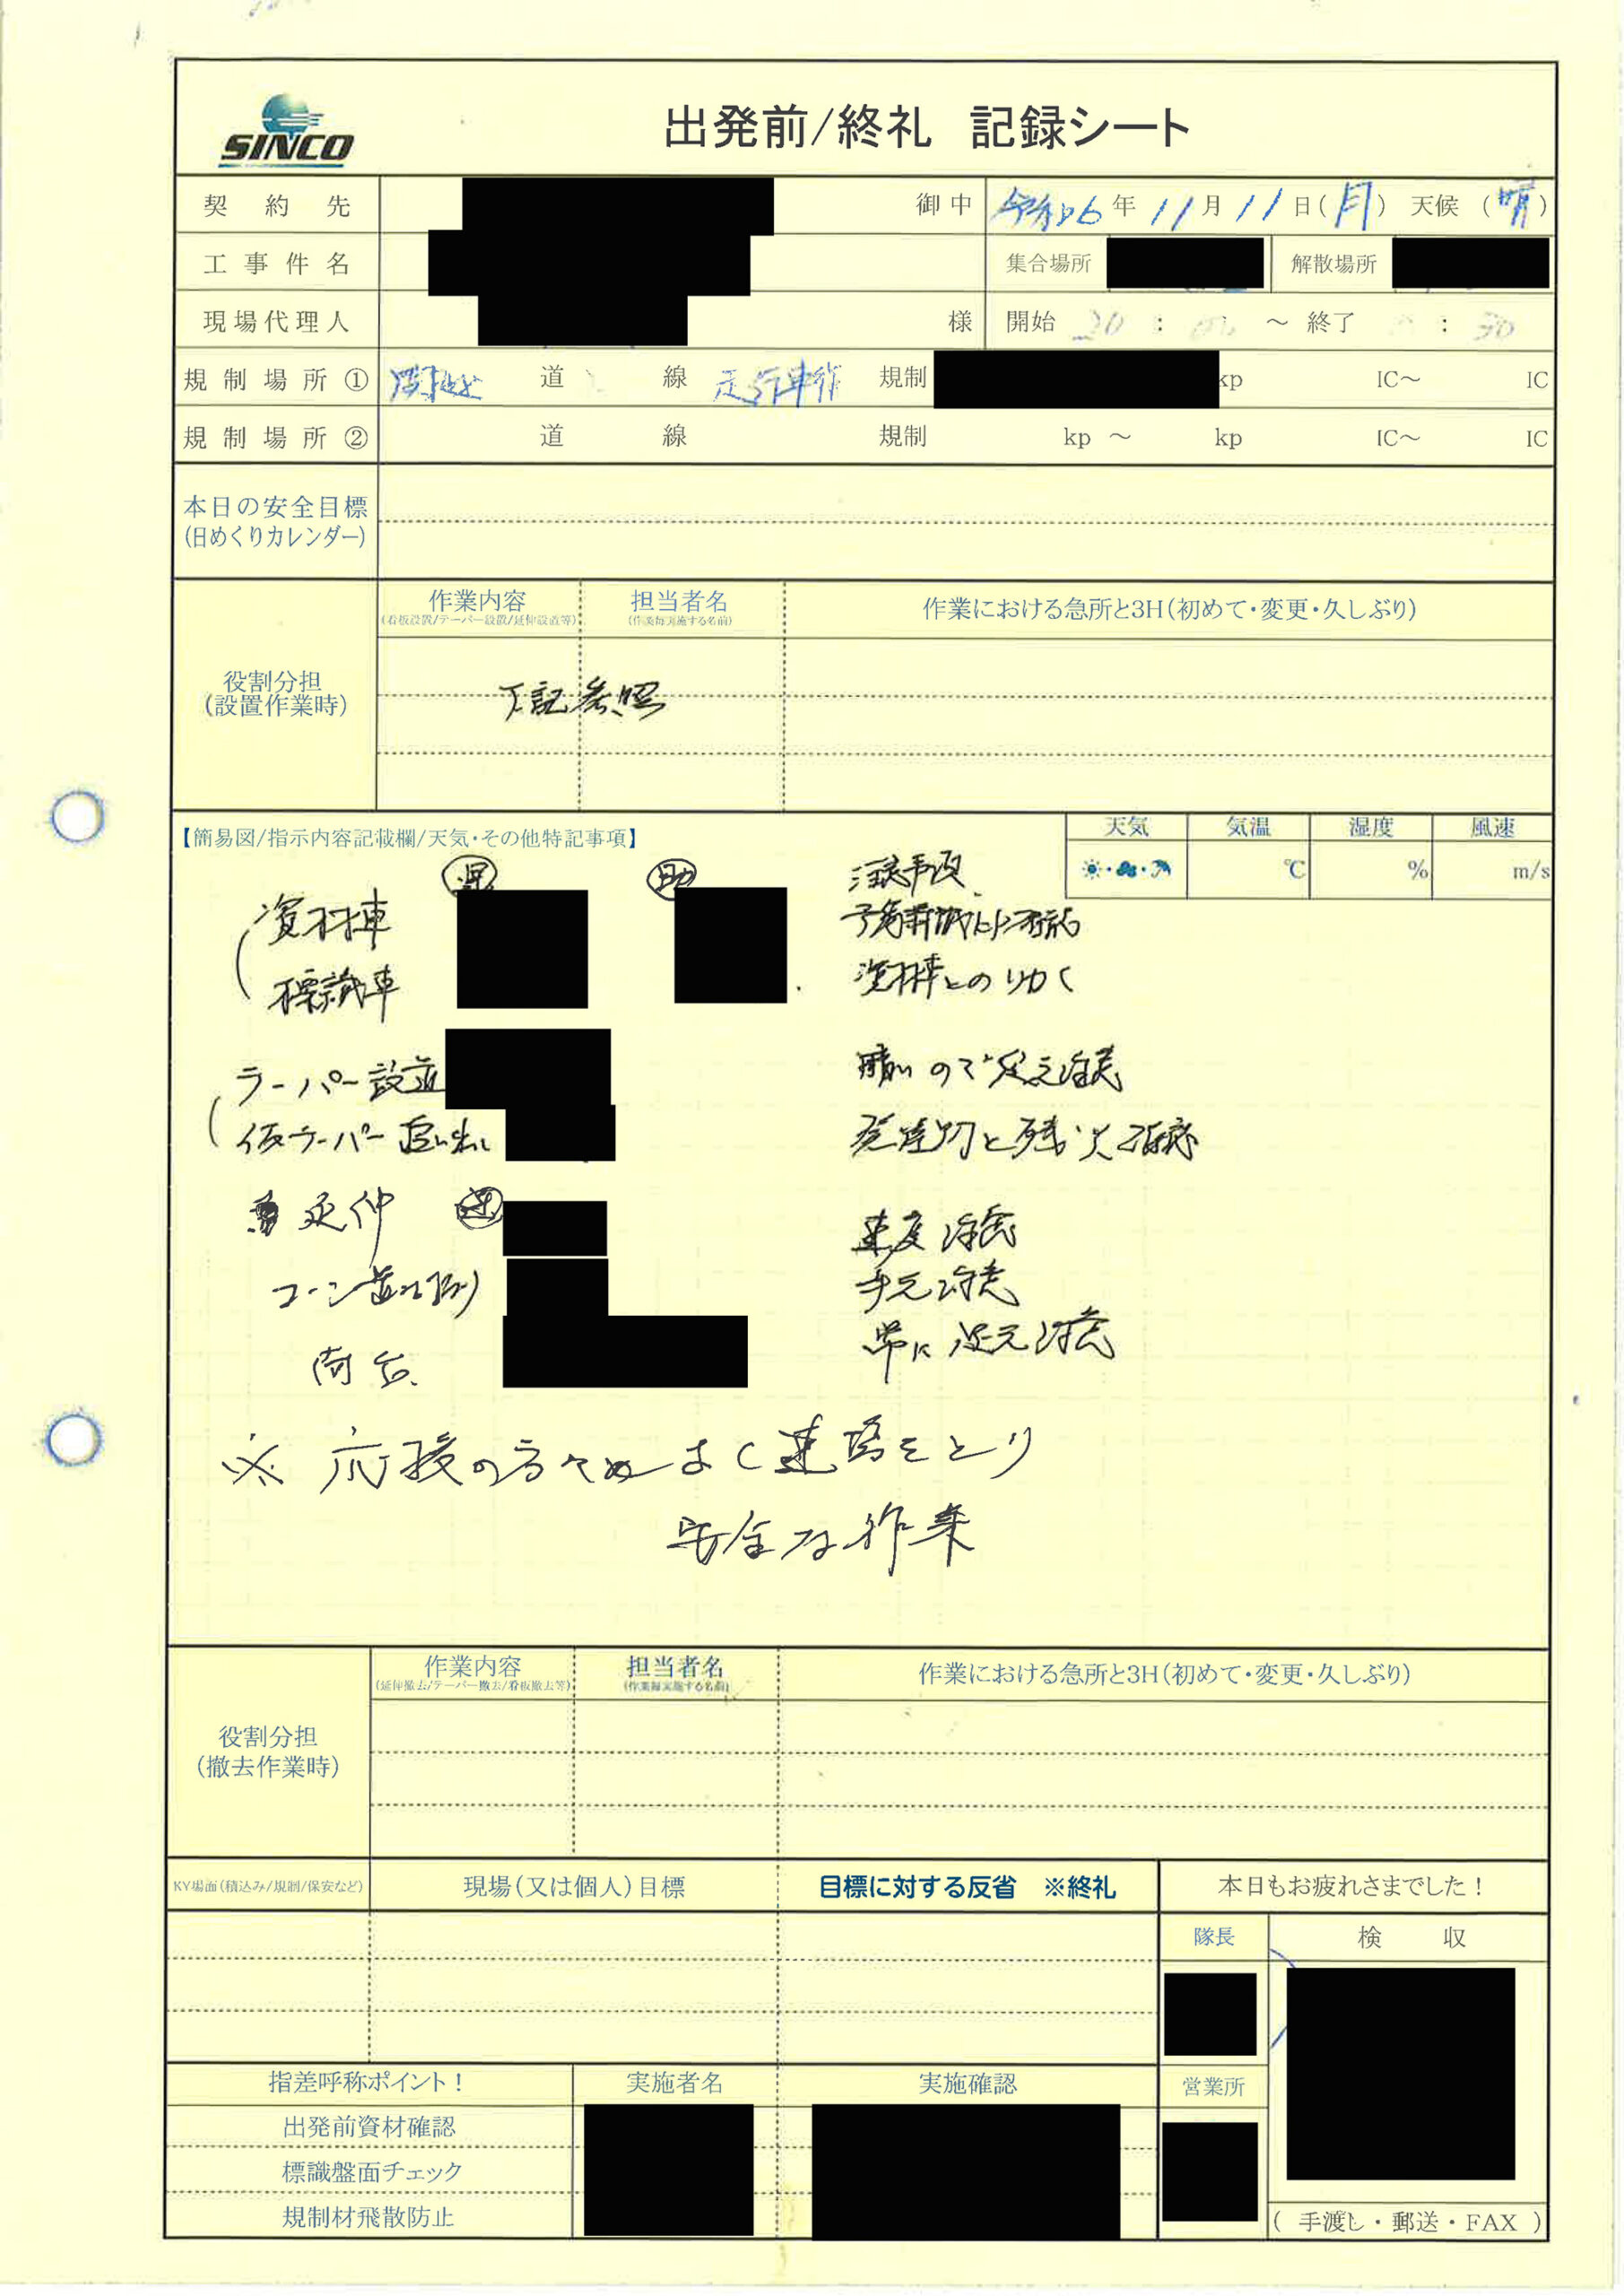 SINCO
出発前/終礼 記録シート
契約先 御中 令和6年11月11日(月) 天候(晴)
工事件名 集合場所 解散場所
現場代理人 様 開始 20: ～ 終了 :30
規制場所① 関越 道 線 走行車 規制 kp IC～ IC
規制場所② 道 線 規制 kp ～ kp IC～ IC
本日の安全目標
(日めくりカレンダー)
作業内容 担当者名 作業における急所と3H(初めて・変更・久しぶり)
(看板設置/テーパー設置/延伸設置等) (作業毎実施する名前)
役割分担
(設置作業時)
下記参照
【簡易図/指示内容記載欄/天気・その他特記事項】
天気 気温 湿度 風速
℃ % m/s
助 注意事項
資材車
標識車 資材車との
テーパー設置 暗いので足元注意
仮テーパー追い出し 発煙筒と残火確認
延伸 運 速度注意
コーン 手元注意
荷台 常に足元注意
※応援の方々とよく連絡をとり
安全な作業
作業内容 担当者名 作業における急所と3H(初めて・変更・久しぶり)
(延伸撤去/テーパー撤去/看板撤去等) (作業毎実施する名前)
役割分担
(撤去作業時)
KY場面(積込み/規制/保安など) 現場(又は個人)目標 目標に対する反省 ※終礼 本日もお疲れさまでした！
隊長 検収
指差呼称ポイント！ 実施者名 実施確認 営業所
出発前資材確認
標識盤面チェック
規制材飛散防止
(手渡し・郵送・FAX)